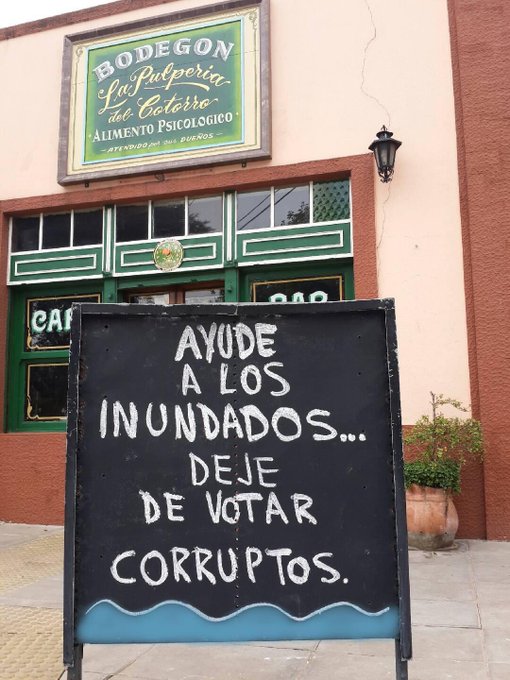 BODEGON
La Pulperia
del Cotorro
ALIMENTO PSICOLOGICO
ATENDIDO por sus DUEÑOS
BAR
AYUDE
A LOS
INUNDADOS...
DEJE
DE VOTAR
CORRUPTOS.